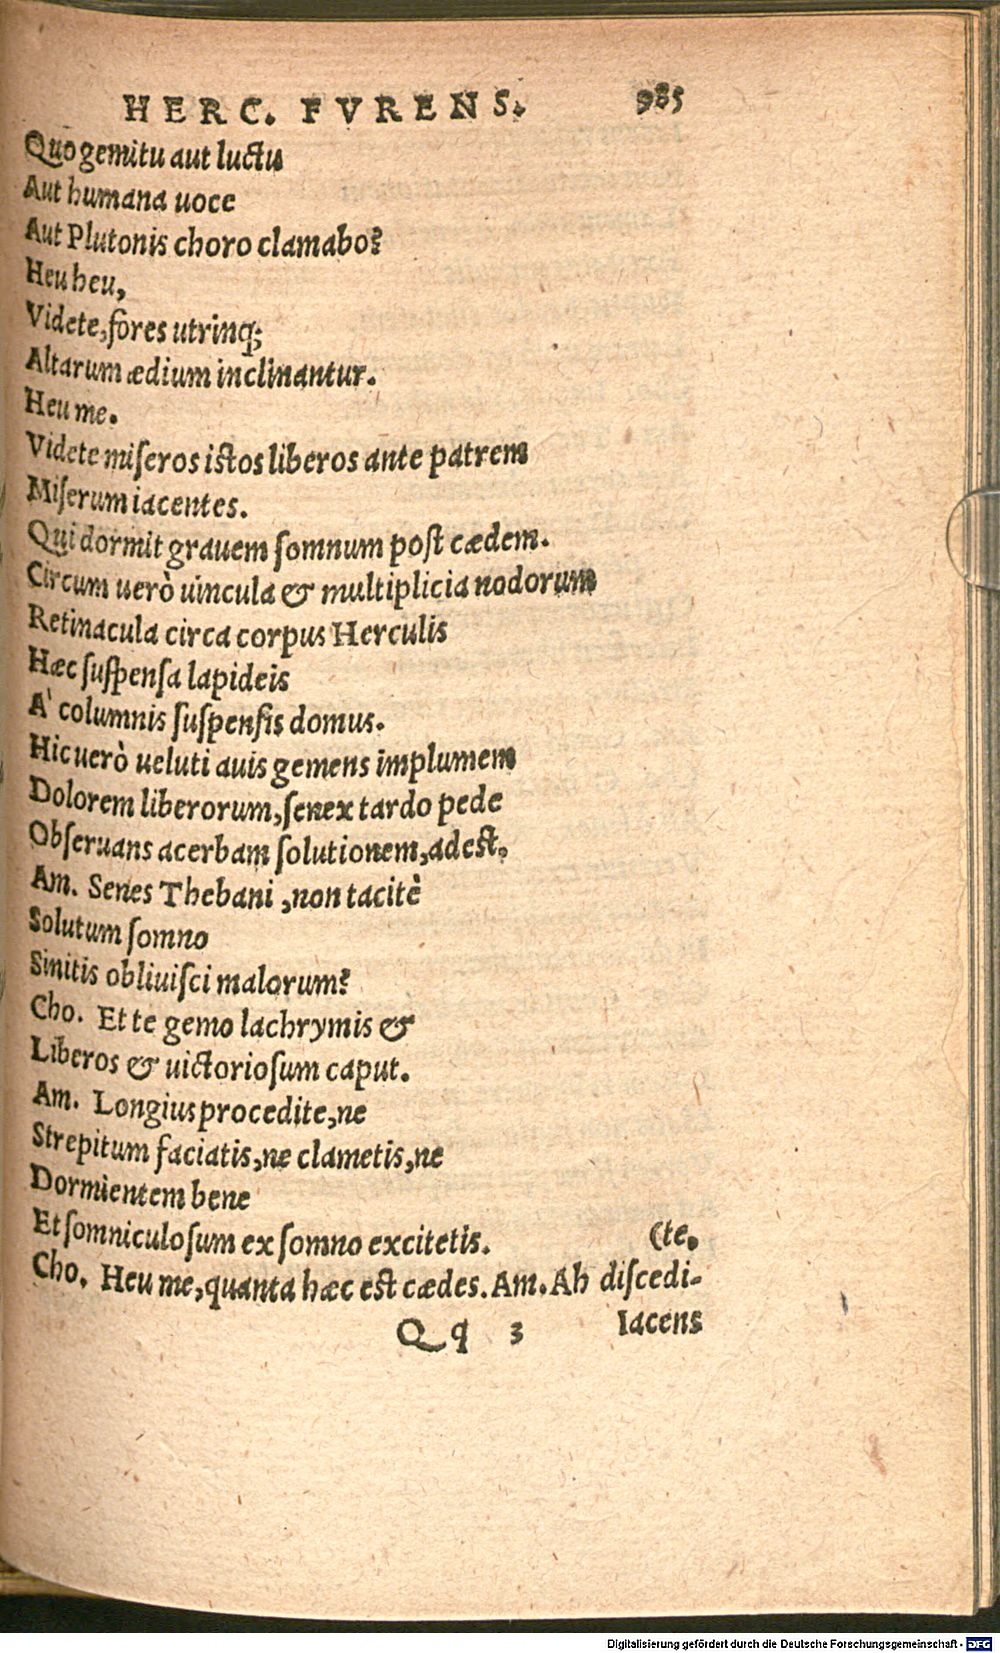 HERC. FVRENS. 985
Quo gemitu aut luctu
Aut humana uoce
Aut Plutonis choro clamabo?
Heu heu,
Videte, fores utrinq;
Altarum ædium inclinantur.
Heu me.
Videte miſeros istos liberos ante patrem
Miſerum iacentes.
Qui dormit grauem ſomnum poſt cædem.
Circum uerò uincula & multiplicia nodorum
Retinacula circa corpus Herculis
Hæc ſuſpenſa lapideis
A' columnis ſuſpenſis domus.
Hic uerò ueluti auis gemens implumem
Dolorem liberorum, ſenex tardo pede
Obſeruans acerbam ſolutionem, adeſt.
Am. Senes Thebani, non tacitè
Solutum ſomno
Sinitis obliuiſci malorum?
Cho. Et te gemo lachrymis &
Liberos & uictorioſum caput.
Am. Longius procedite, ne
Strepitum faciatis, ne clametis, ne
Dormientem bene
Et ſomniculoſum ex ſomno excitetis. (te.
Cho. Heu me, quanta hæc est cædes. Am. Ah diſcedi-
Qq 3 Iacens
Digitalisierung gefördert durch die Deutsche Forschungsgemeinschaft - DFG